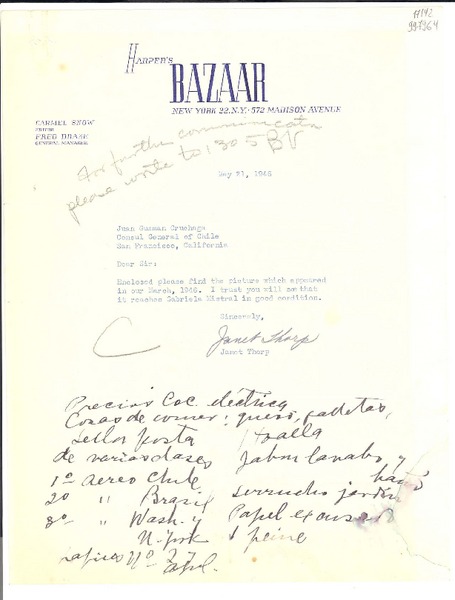 HARPER'S
BAZAAR
NEW YORK 22.N.Y.·572 MADISON AVENUE
CARMEL SNOW
EDITOR
FRED DRAKE
GENERAL MANAGER
For further communication
please write to 1305 BV
May 21, 1946
Juan Guzman Cruchaga
Consul General of Chile
San Francisco, California
Dear Sir:
Enclosed please find the picture which appeared
in our March, 1946. I trust you will see that
it reaches Gabriela Mistral in good condition.
Sincerely,
Janet Thorp
Janet Thorp
Precios Coc eléctrica
Cosas de comer: queso, galletas,
Sellos posta
de varias clases
toalla
Jabón lavabo y
baño
1º aereo Chile
serrucho jardín
2º " Brasil
Papel excusado
3º " Wash. y
N. York
1 peine